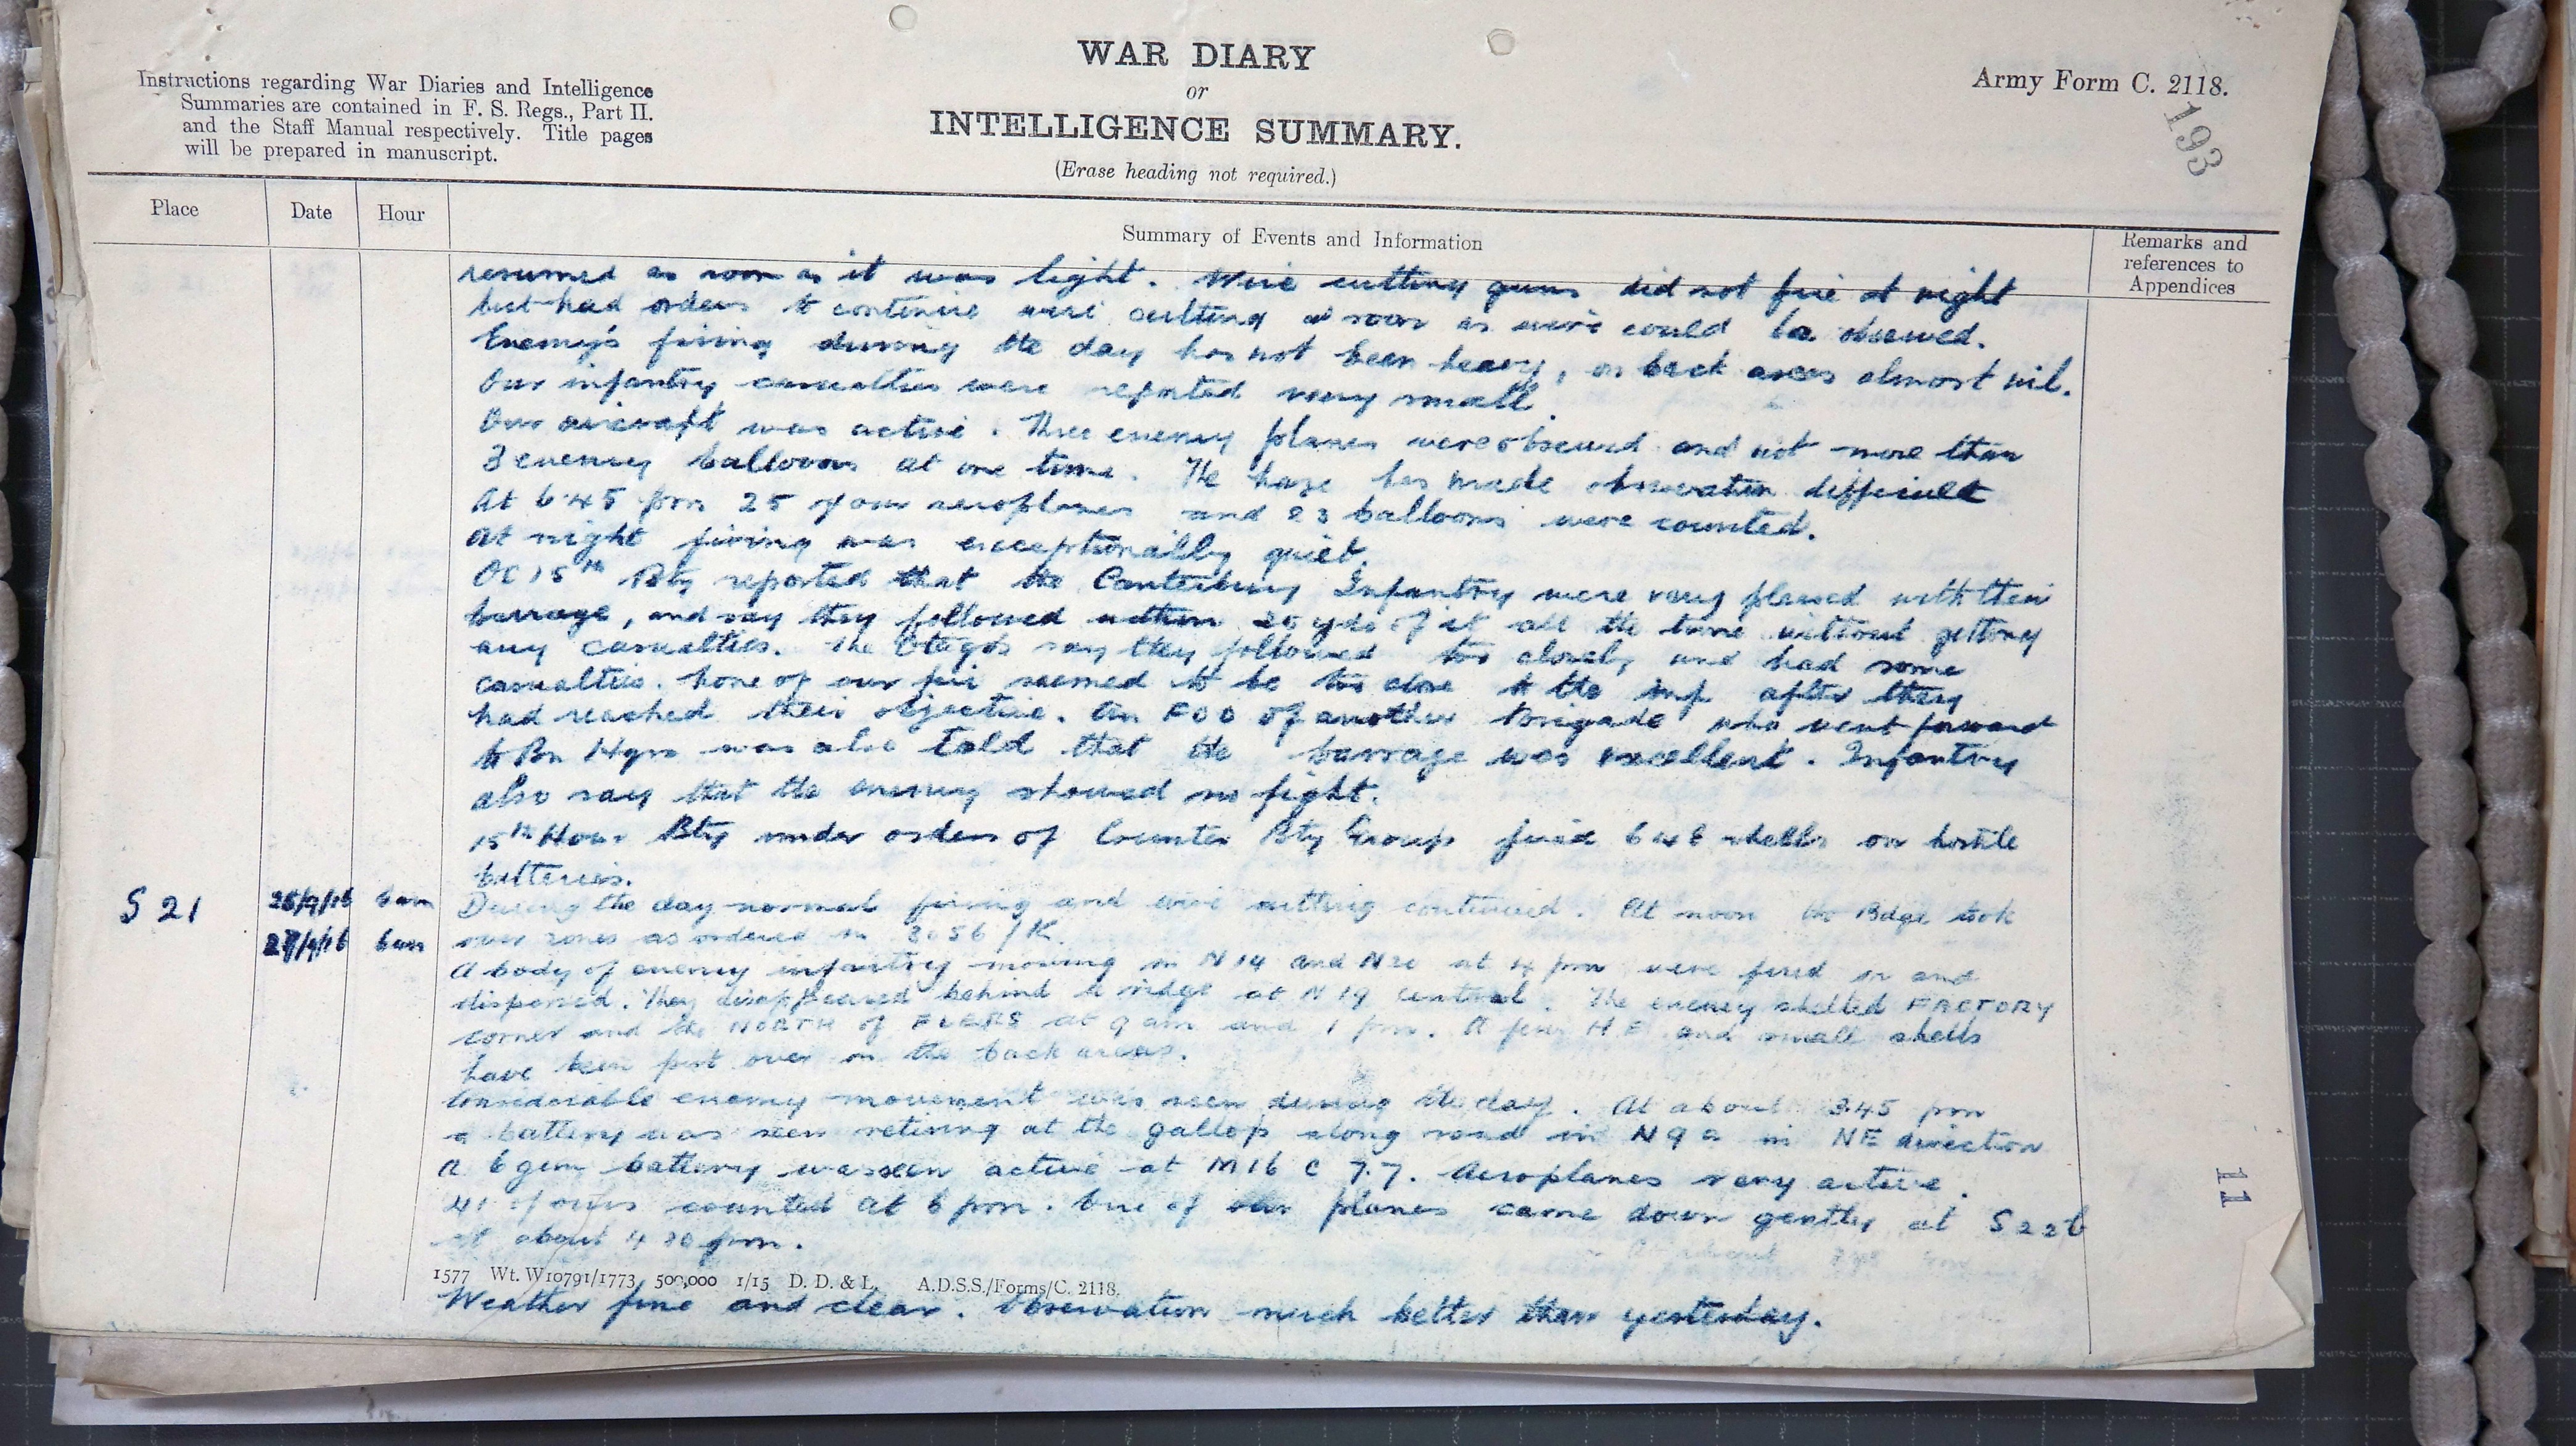 Instructions regarding War Diaries and Intelligence
Summaries are contained in F. S. Regs., Part II.
and the Staff Manual respectively. Title pages
will be prepared in manuscript.
WAR DIARY
or
INTELLIGENCE SUMMARY.
(Erase heading not required.)
Army Form C. 2118.
193
Place
Date
Hour
Summary of Events and Information
Remarks and
references to
Appendices
resumed as soon as it was light. Wire cutting guns did not fire at night
but had orders to continue wire cutting as soon as wire could be observed.
Enemy's firing during the day has not been heavy, on back areas almost nil.
Our infantry casualties were reported very small.
Our aircraft was active. Three enemy planes were observed and not more than
3 enemy balloons at one time. The haze has made observation difficult
At 6.45 pm 25 of our aeroplanes and 23 balloons were counted.
At night firing was exceptionally quiet.
OC 15th Bty reported that the Canterbury Infantry were very pleased with their
barrage, and say they followed within 25 yds of it all the time without getting
any casualties. The Otagos say they followed too closely and had some
casualties. None of our fire seemed to be too close to the inf after they
had reached their objective. An FOO of another Brigade who went forward
to Bn Hqrs was also told that the barrage was excellent. Infantry
also say that the enemy showed no fight.
15th How. Bty under orders of Counter Bty Group fired 646 shells on hostile
batteries.
S 21
26/9/16 6am
27/9/16 6am
During the day normal firing and wire cutting continued. At noon the Bdge took
over zones as ordered in 3056/K.
A body of enemy infantry moving in N14 and N20 at 4 pm were fired on and
dispersed. They disappeared behind a ridge at N19 central. The enemy shelled FACTORY
corner and the NORTH of FLERS at 9 am and 1 pm. A few H E and small shells
have been put over on the back areas.
Considerable enemy movement was seen during the day. At about 3.45 pm
a battery was seen retiring at the gallop along road in N9a in NE direction
A 6 gun battery was seen active at M16 C 7.7. Aeroplanes very active.
41 of ours counted at 6 pm. One of our planes came down gently at S22b
at about 4 30 pm.
1577 Wt. W10791/1773 500,000 1/15 D. D. & L. A.D.S.S./Forms/C. 2118.
Weather fine and clear. Observation much better than yesterday.
11